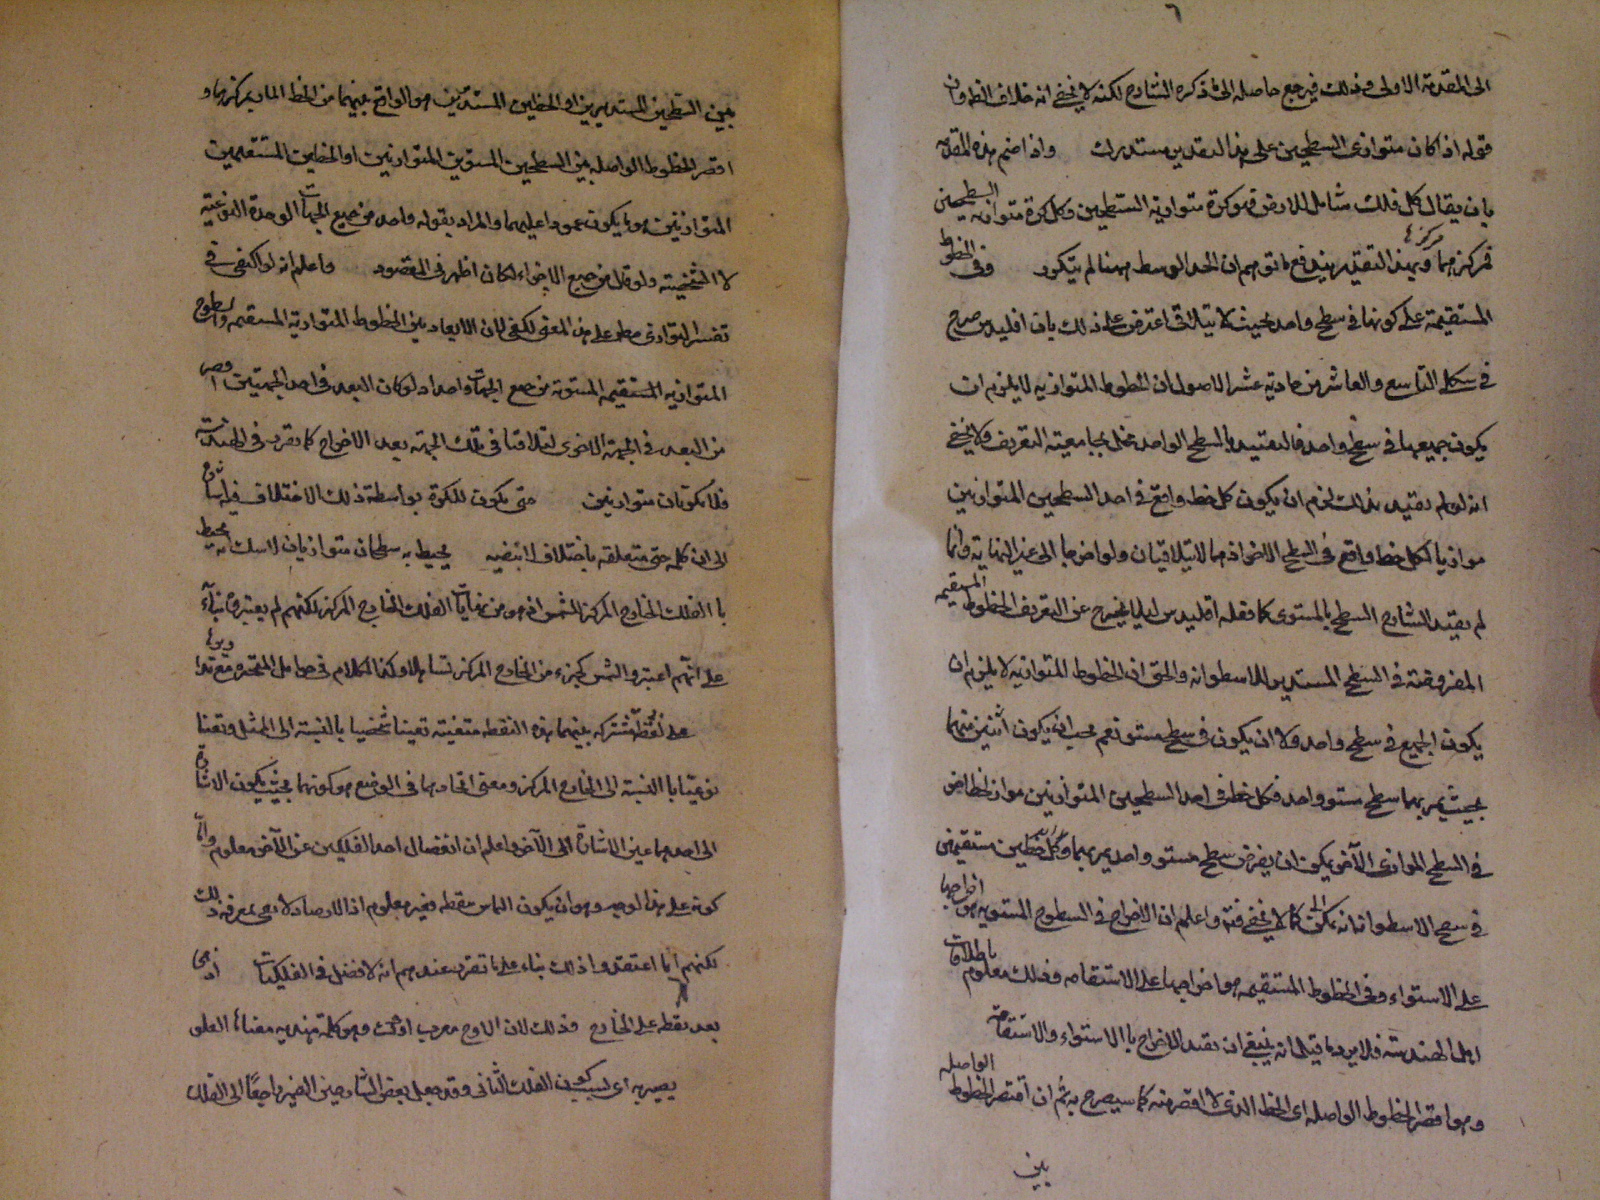 ٦
الى المقدمة الاولى وذلك فيرجع حاصله الى ما ذكره الشارح لكنه لا يخفى انه خلاف الظ وان
قوله اذ كان متوازى السطحين على هذا التقدير مستدرك واذا ضم هذه المقدمة
بان يقال كل فلك شامل للارض فهو كرة متوازية السطحين وكل كرة متوازية السطحين
فمركزهما مركزها وبهذا التقدير يندفع ما توهم ان الحد الوسط ههنا لم يتكرر وفى الخطوط
المستقيمة على كونها فى سطح واحد بحيث لا يتلاقى اعترض على ذلك بان اقليدس صرح
فى شكل التاسع والعاشر من حادية عشر الاصول ان الخطوط المتوازية لا يلزم ان
يكون جميعها فى سطح واحد فالتقييد بالسطح الواحد مخل بجامعية التعريف ولا يخفى
انه لو لم يقيد بذلك لزم ان يكون كل خط واقع فى احد السطحين المتوازيين
موازيا لكل خط واقع فى السطح الاخر اذ هما لا يتلاقيان ولو اخرجا الى غير النهاية وانما
لم يقيد الشارح السطح بالمستوى كما فعله اقليدس لئلا يخرج عن التعريف الخطوط المستقيمة
المفروضة فى السطح المستدير للاسطوانة والحق ان الخطوط المتوازية لا يلزم ان
يكون الجميع فى سطح واحد ولا ان يكون فى سطح مستو نعم يجب ان يكون اثنين منهما
بحيث يمر بهما سطح مستو واحد فكل خط فى احد السطحين المتوازيين مواز لخط اخر
فى السطح الموازى الآخر يمكن ان يفرض سطح مستو واحد يمر بهما وكل خطين مستقيمين
فى سطح الاسطوانة انه يمكن كما لا يخفى فتد واعلم ان الاخراج فى السطوح المستوية هو اخراجها
على الاستواء وفى الخطوط المستقيمة هو اخراجها على الاستقامة وذلك معلوم باطلاقات
اهل الهندسة فلا يرد ما قيل انه ينبغى ان يقيد الاخراج بالاستواء والاستقامة
وهو اقصر الخطوط الواصلة اى الخط الذى لا اقصر منه كما سيصرح به ثم ان اقصر الخطوط الواصلة
بين
بين السطحين المستديرين او الخطين المستديرين هو الواقع بينهما من الخط المار بمركزهما و
اقصر الخطوط الواصلة بين السطحين المستويين المتوازيين او الخطين المستقيمين
المتوازيين هو ما يكون عمودا عليهما والمراد بقوله واحد من جميع الجهات الوحدة النوعية
لا الشخصية ولو قال من جميع الاجزاء لكان اظهر فى المقصود واعلم انه لو اكتفى فى
تفسير التوازى مطلقا على هذا المعنى لكفى لان الابعاد بين الخطوط المتوازية المستقيمة والسطوح
المتوازية المستقيمة المستوية من جميع الجهات واحد اذ لو كان البعد فى احد الجهتين اقصر
من البعد فى الجهة الاخرى لتلاقتا فى تلك الجهة بعد الاخراج كما تقرر فى الهندسة
فلا يكونان متوازيين حتى يكون للكرة بواسطة ذلك الاختلاف فيه اشارة
الى ان كلمة حتى متعلقة باختلاف لا بنفيه يحيط به سطحان متوازيان لا شك انه يحيط
با الفلك الخارج المركز الشمس اذ هو من نهايات الفلك الخارج المركز لكنهم لم يعتبروها بناء
على انهم اعتبروا الشمس كجزء من الخارج المركز تساهلا وكذا الكلام فى حوامل المتحيرة مع تداويرها
على نقطة مشتركة بينهما هذه النقطة متعينة تعينا شخصيا بالنسبة الى الممثل وتعينا
نوعيا با النسبة الى الخارج المركز ومعنى اتحادهما فى الوضع هو كونهما بحيث يكون الاشارة
الى احدهما عين الاشارة الى الآخر واعلم ان انفصال احد الفلكين عن الآخر معلوم واما
كونه على هذا الوجه وهو ان يكون التماس بنقطة فغير معلوم اذ الارصاد لا تفى بمعرفة ذلك
لكنهم انما اعتقدوا ذلك بناء على ما تقرر عندهم انه لا فضل فى الفلكيات اذ هى
بعد نقطة على الخارج وذلك لان الاوج معرب اوك وهو كلمة هندية معناها العلو
يصير به اى بسبب كون الفلك الثانى وقد جعل بعض الشارحين الضمير راجعا الى الفلك